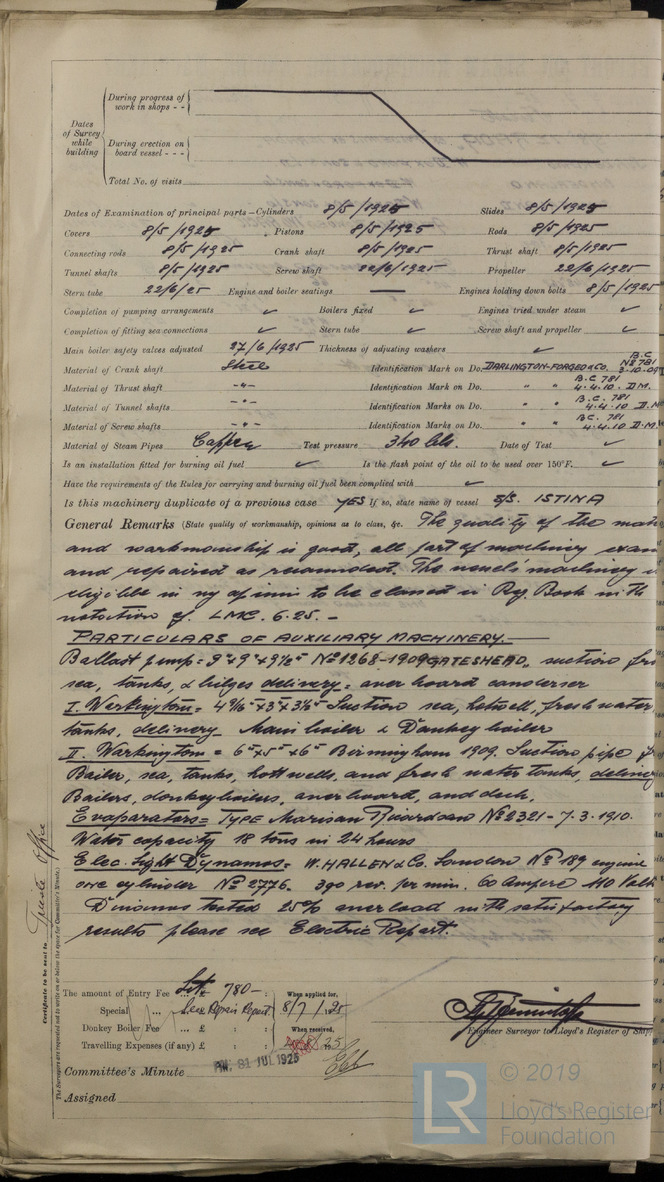 During progress of
work in shops - -
Dates
of Survey
while
building
During erection on
board vessel - - -
Total No. of visits
Dates of Examination of principal parts—Cylinders 8/5/1925 Slides 8/5/1925
Covers 8/5/1925 Pistons 8/5/1925 Rods 8/5/1925
Connecting rods 8/5/1925 Crank shaft 8/5/1925 Thrust shaft 8/5/1925
Tunnel shafts 8/5/1925 Screw shaft 22/6/1925 Propeller 22/6/1925
Stern tube 22/6/25 Engine and boiler seatings — Engines holding down bolts 8/5/1925
Completion of pumping arrangements ✓ Boilers fixed ✓ Engines tried under steam ✓
Completion of fitting sea connections ✓ Stern tube ✓ Screw shaft and propeller ✓
Main boiler safety valves adjusted 27/6/1925 Thickness of adjusting washers ✓
Material of Crank shaft Steel Identification Mark on Do. DARLINGTON-FORGED & Co. B.C Nº 781 3-10-09
Material of Thrust shaft -"- Identification Mark on Do. " " B.C 781 4.4.10. D.M.
Material of Tunnel shafts -"- Identification Marks on Do. " " B.C. 781 4.4.10 D.M.
Material of Screw shafts -"- Identification Marks on Do. " " BC. 781 4.4.10 D.M.
Material of Steam Pipes Copper Test pressure 340 lbs. Date of Test ✓
Is an installation fitted for burning oil fuel ✓ Is the flash point of the oil to be used over 150°F. ✓
Have the requirements of the Rules for carrying and burning oil fuel been complied with ✓
Is this machinery duplicate of a previous case YES If so, state name of vessel S/S. ISTINA
General Remarks (State quality of workmanship, opinions as to class, &c. The quality of the mat
and workmanship is good, all part of machinery exam
and repaired as recommended. The vessel's machinery
eligible in my opinion to be classed in Reg. Book with
notation of. LMC. 6.25. -
PARTICULARS OF AUXILIARY MACHINERY.-
Ballast pump = 9"x9"x9½" Nº1268-1909 GATESHEAD, suction fr
sea, tanks, & bilges delivery = over board condenser
I. Workington = 4⅞"x3"x3½" Suction sea, hotwell, fresh water
tanks, delivery Main boiler & Donkey boiler
II. Workington = 6"x5"x6" Birmingham 1909. Suction pipe
Boiler, sea, tanks, hott wells, and fresh water tanks, deliver
Boilers, donkey boilers, over board, and deck,
Evaporators = TYPE Morison Nº2321-7.3.1910.
Water capacity 18 tons in 24 hours
Elec. Light Dynamos = W. HALLEN & Co. London Nº 189 engine
one cylinder Nº 2776. 390 rev. per min. 60 Ampere 110 Volt
Dinamos tested 25% overload with satisfactory
results please see Electric Report.
Certificate to be sent to Trieste Office
The Surveyors are requested not to write on or below the space for Committee's Minute.
The amount of Entry Fee ... Lit. £ 780-: When applied for,
Special ... See Repair Report 8/7/1925
Donkey Boiler Fee ... £ : : When received,
Travelling Expenses (if any) £ : : 25
Engineer Surveyor to Lloyd's Register of Ship
Committee's Minute
FRI. 31 JUL 1925
Assigned
LR
© 2019
Lloyd's Register
Foundation